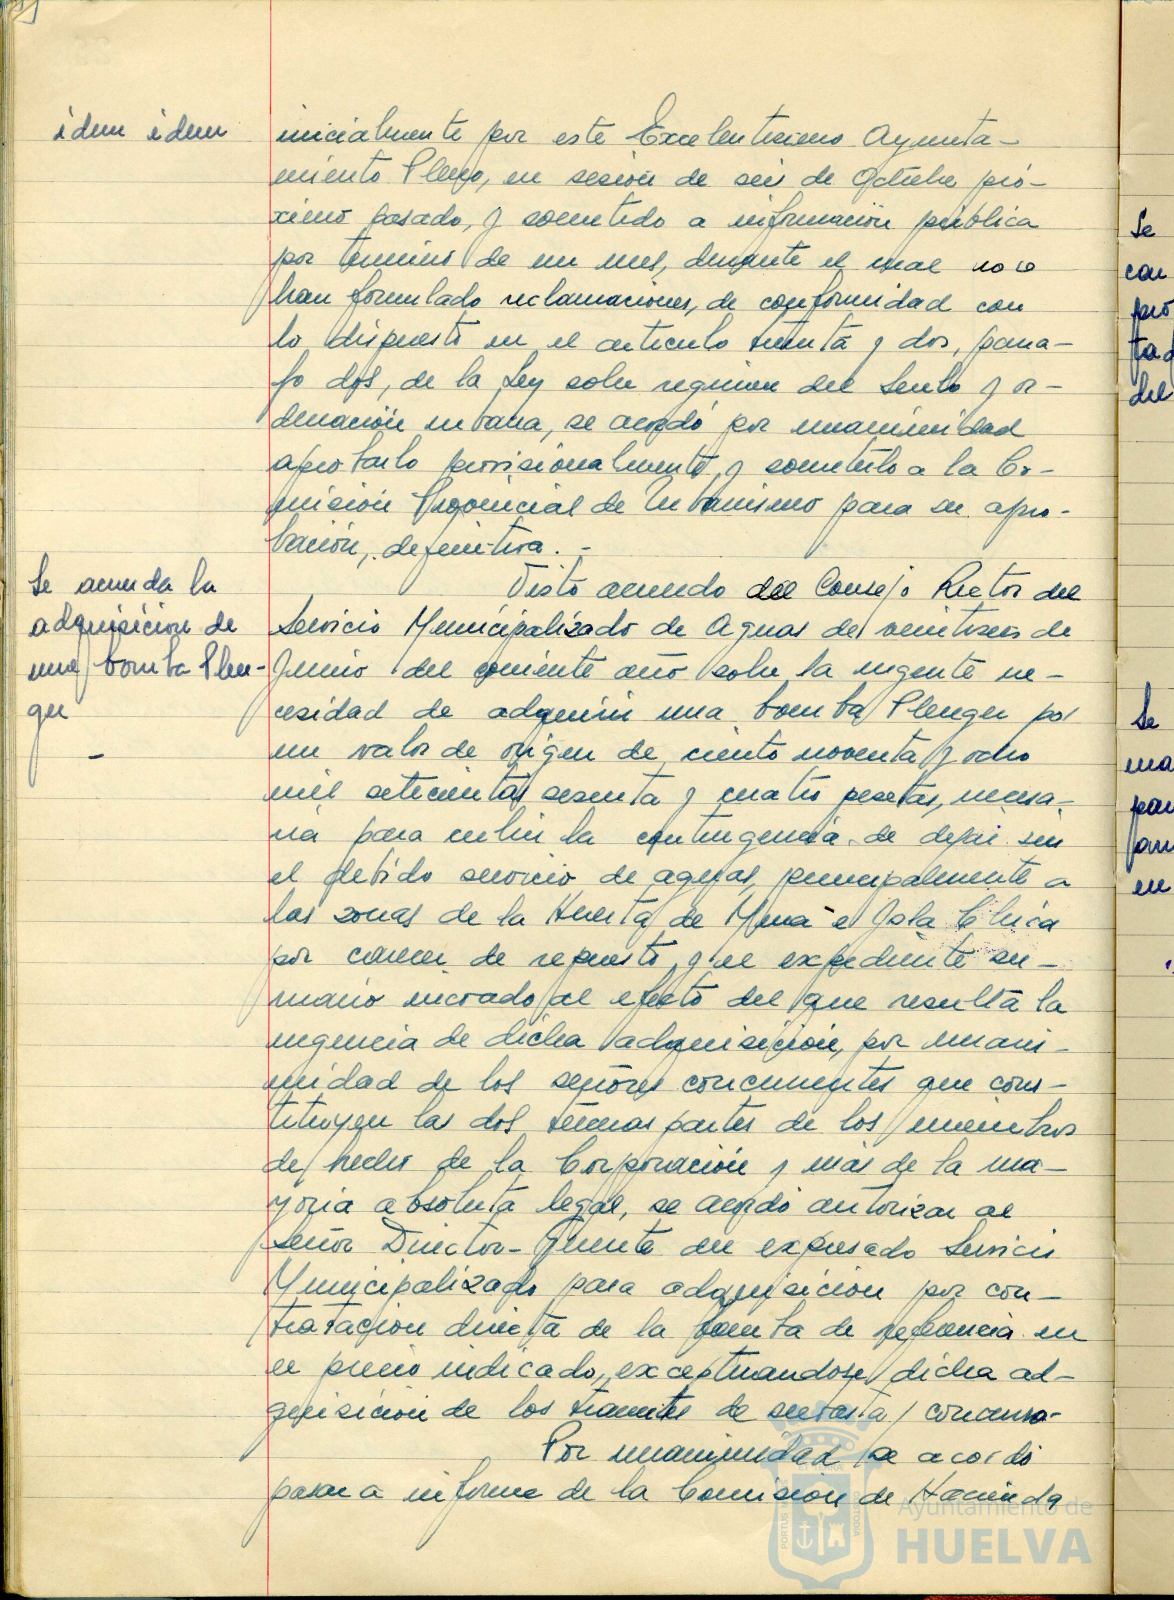 idem idem
inicialmente por este Excelentísimo Ayunta-
miento Pleno, en sesión de seis de Octubre pró-
ximo pasado, y sometido a información pública
por término de un mes, durante el cual no se
han formulado reclamaciones, de conformidad con
lo dispuesto en el artículo treinta y dos, párra-
fo dos, de la Ley sobre régimen del Suelo y or-
denación urbana, se acordó por unanimidad
aprobarlo provisionalmente y someterlo a la Co-
misión Provincial de Urbanismo para su apro-
bación, definitiva. -
Se acuerda la
adquisición de
una bomba Pleu-
ger
-
Visto acuerdo del Consejo Rector del
Servicio Municipalizado de Aguas de veintiseis de
Junio del corriente año sobre la urgente ne-
cesidad de adquirir una bomba Pleuger por
un valor de origen de ciento noventa y ocho
mil setecientas sesenta y cuatro pesetas, necesa-
ria para cubrir la contingencia de dejar sin
el debido servicio de aguas, principalmente a
las zonas de la Huerta de Mena e Isla Chica
por carecer de repuesto, y el expediente su-
mario incoado al efecto del que resulta la
urgencia de dicha adquisición, por unani-
midad de los señores concurrentes que cons-
tituyen las dos terceras partes de los miembros
de hecho de la Corporación y más de la ma-
yoría absoluta legal, se acordó autorizar al
Señor Director-Gerente del expresado Servicio
Municipalizado para adquisición por con-
tratación directa de la bomba de referencia en
el precio indicado, exceptuandose dicha ad-
quisición de los trámites de subasta y concurso-
Por unanimidad se acordó
pasar a informe de la Comisión de Hacienda
Se
con
pro
tad
del
Se
ma
par
par
en
PORTUS MARIS
ET TERRAE
CUSTODIA
Ayuntamiento de
HUELVA